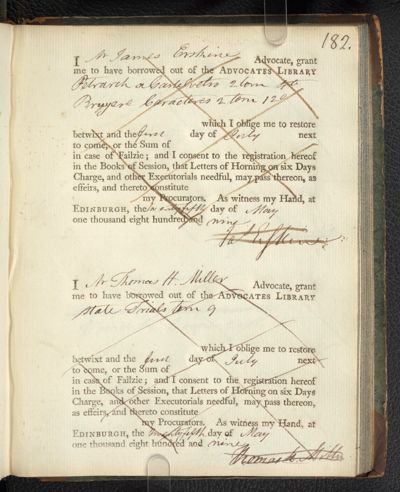 182.
I Mr James Erskine Advocate, grant
me to have borrowed out of the ADVOCATES LIBRARY
Petrarch a Castelvetro 2 tom 4to
Bruyere Caracteres 2 tom 12o
which I oblige me to restore
betwixt and the first day of July next
to come, or the Sum of
in case of Failzie; and I consent to the registration hereof
in the Books of Session, that Letters of Horning on six Days
Charge, and other Executorials needful, may pass thereon, as
effeirs, and thereto constitute
my Procurators. As witness my Hand, at
EDINBURGH, the day of May
one thousand eight hundred and nine
I Mr Thomas H. Miller Advocate, grant
me to have borrowed out of the ADVOCATES LIBRARY
State Trials tom 9
which I oblige me to restore
betwixt and the first day of July next
to come, or the Sum of
in case of Failzie; and I consent to the registration hereof
in the Books of Session, that Letters of Horning on six Days
Charge, and other Executorials needful, may pass thereon,
as effeirs, and thereto constitute
my Procurators. As witness my Hand, at
EDINBURGH, the day of May
one thousand eight hundred and nine
Thomas H. Miller